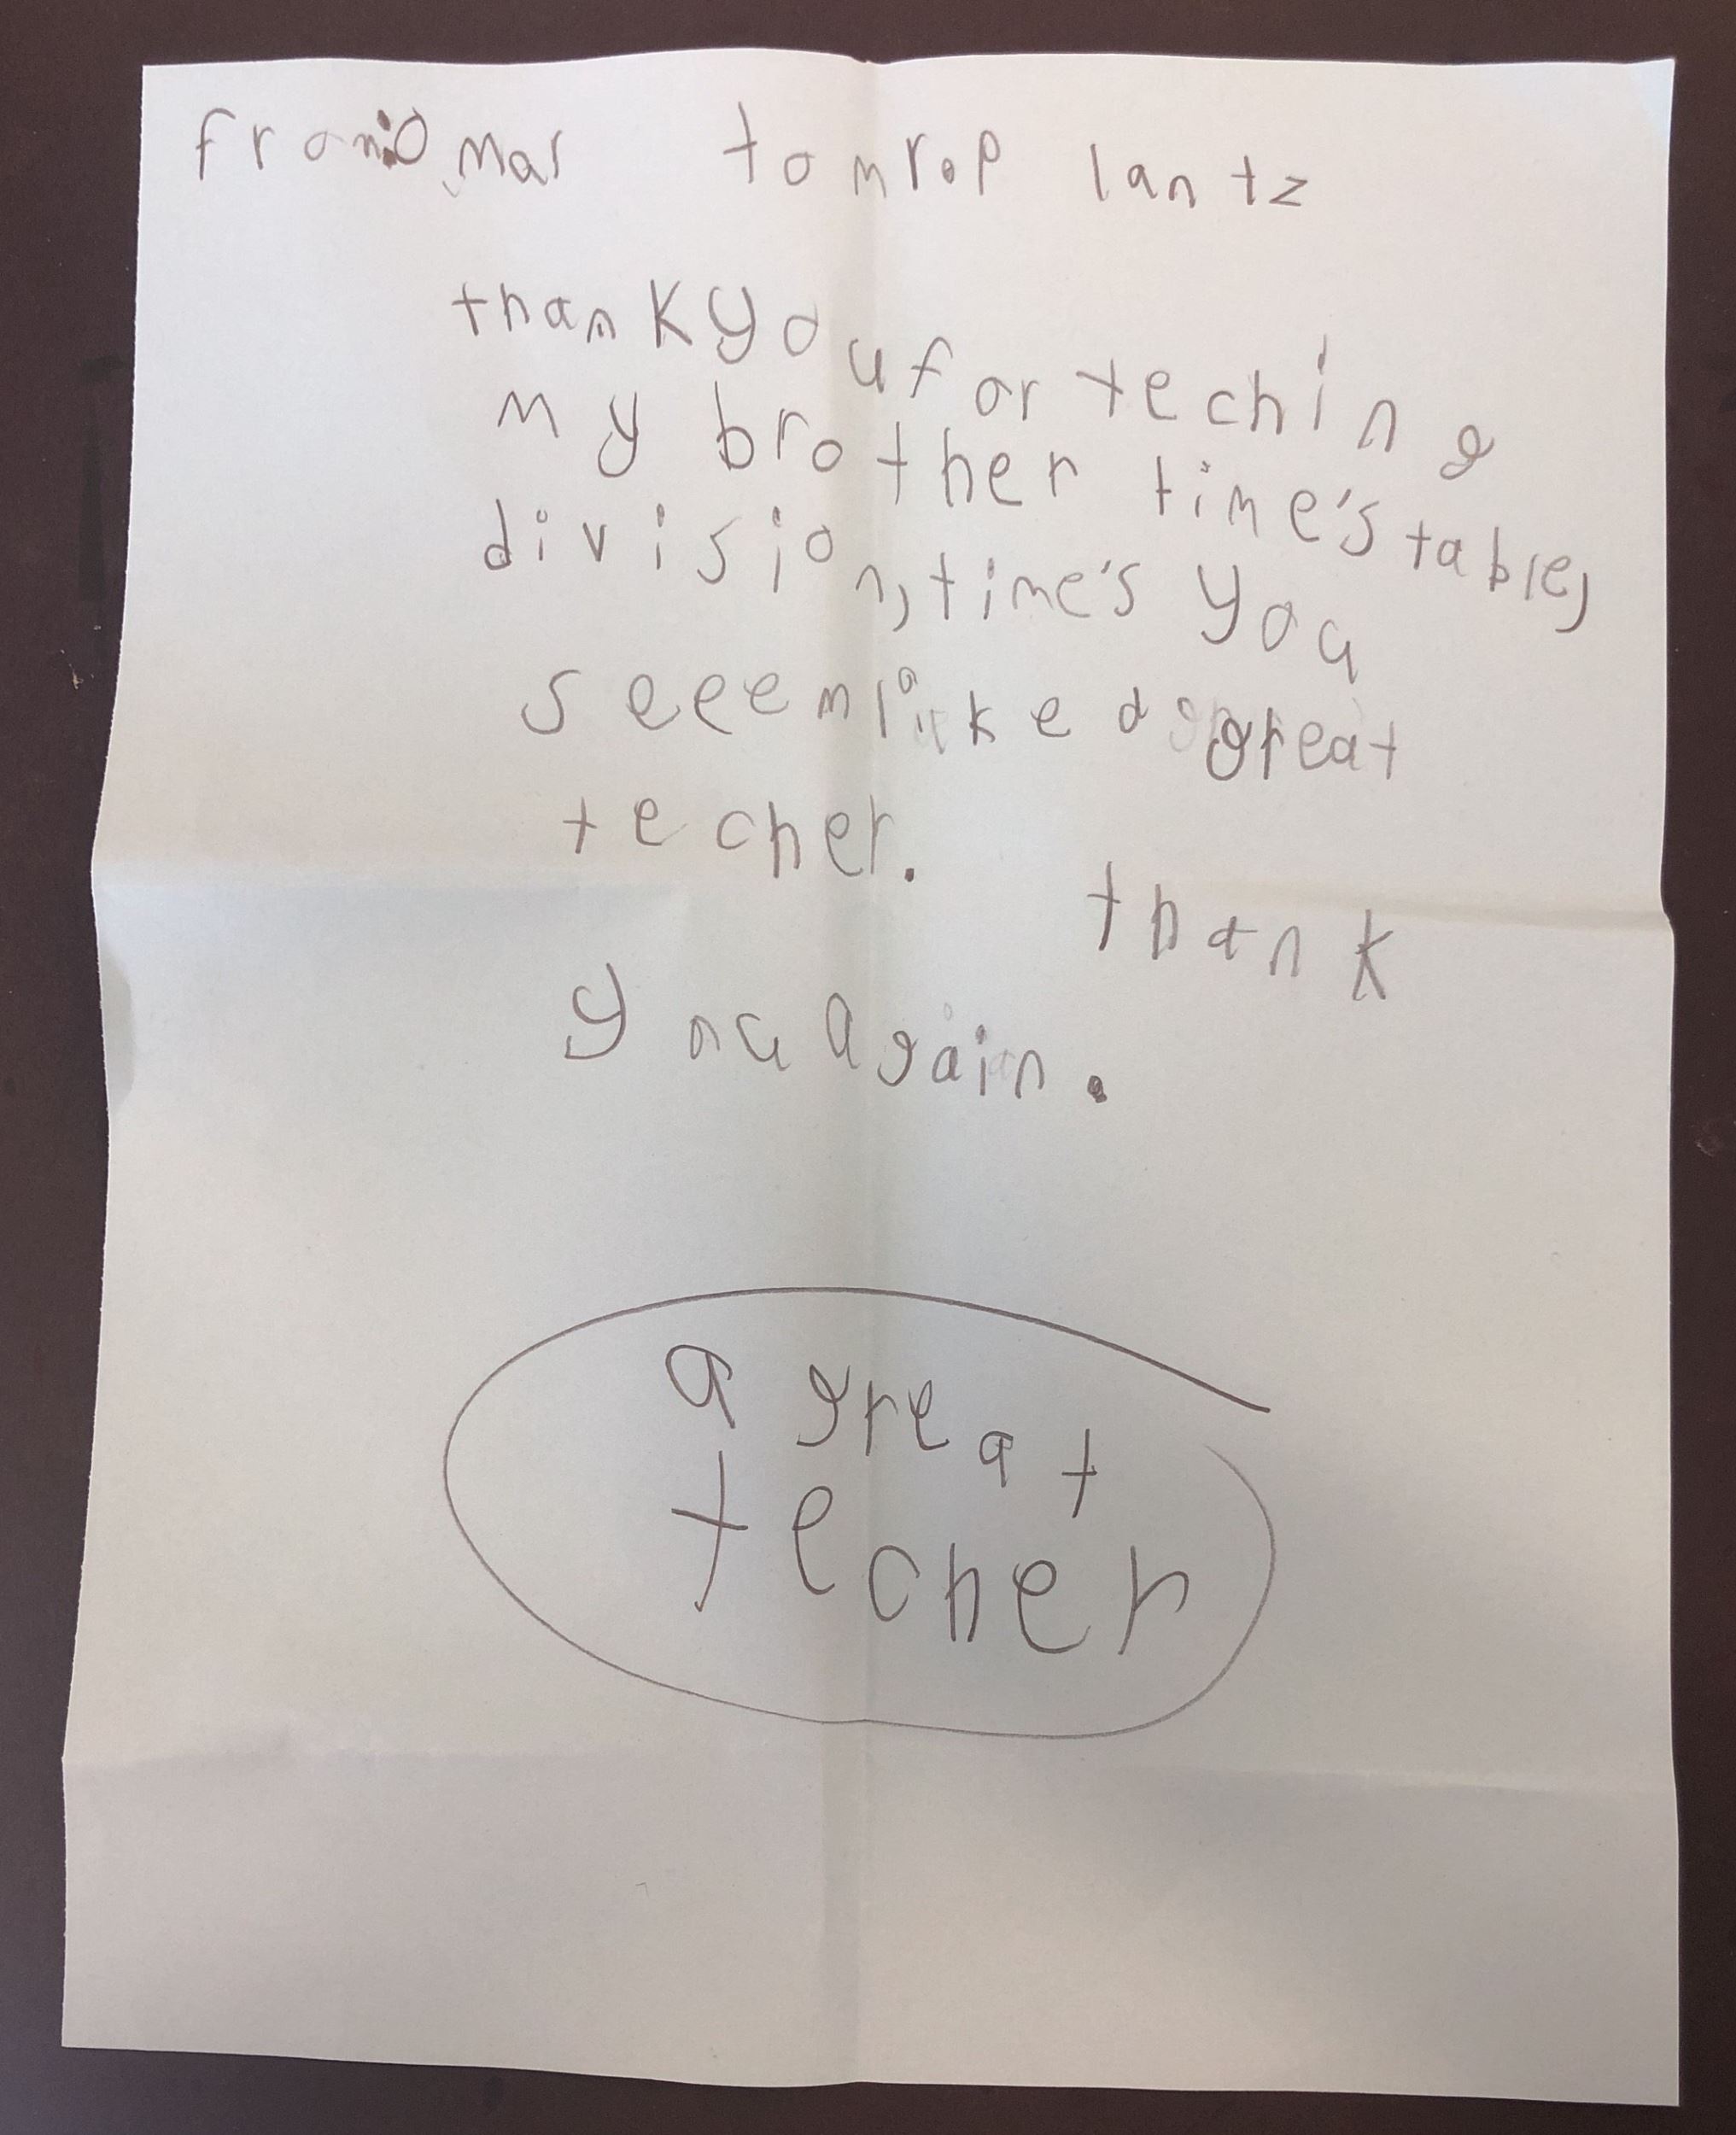 from Omar to mr.P lantz
thank you for teching
my brother time's table,
division, time's you
seeem like a great
techer. thank
you again.
a great
techer